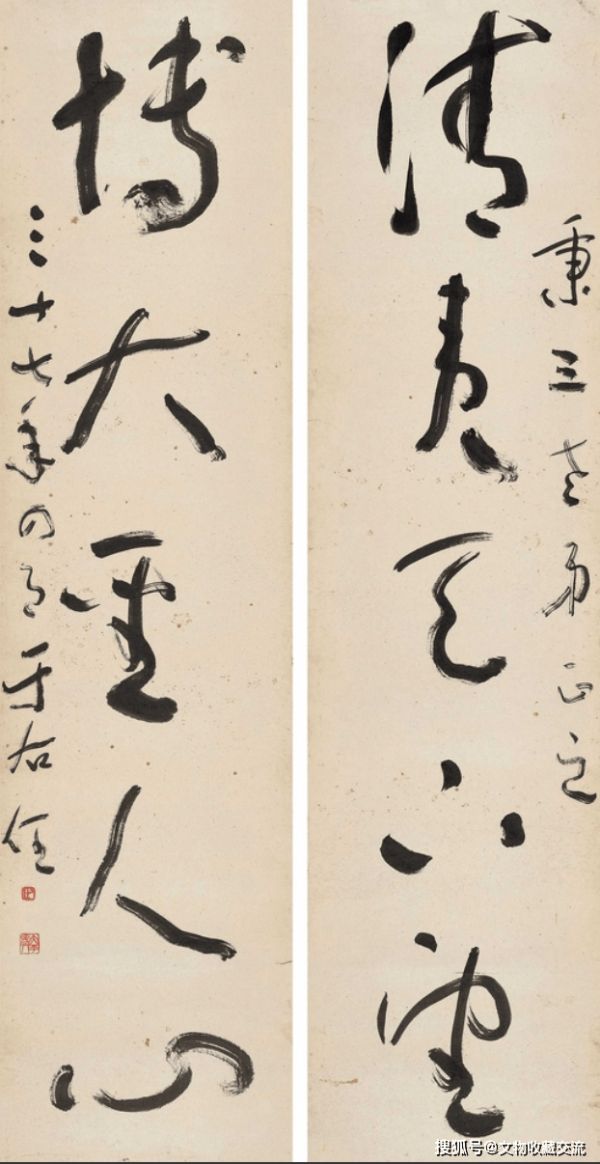 秉三老弟正之
清夷天下望
博大聖人心
三十七年四月于右任
搜狐号@文物收藏交流